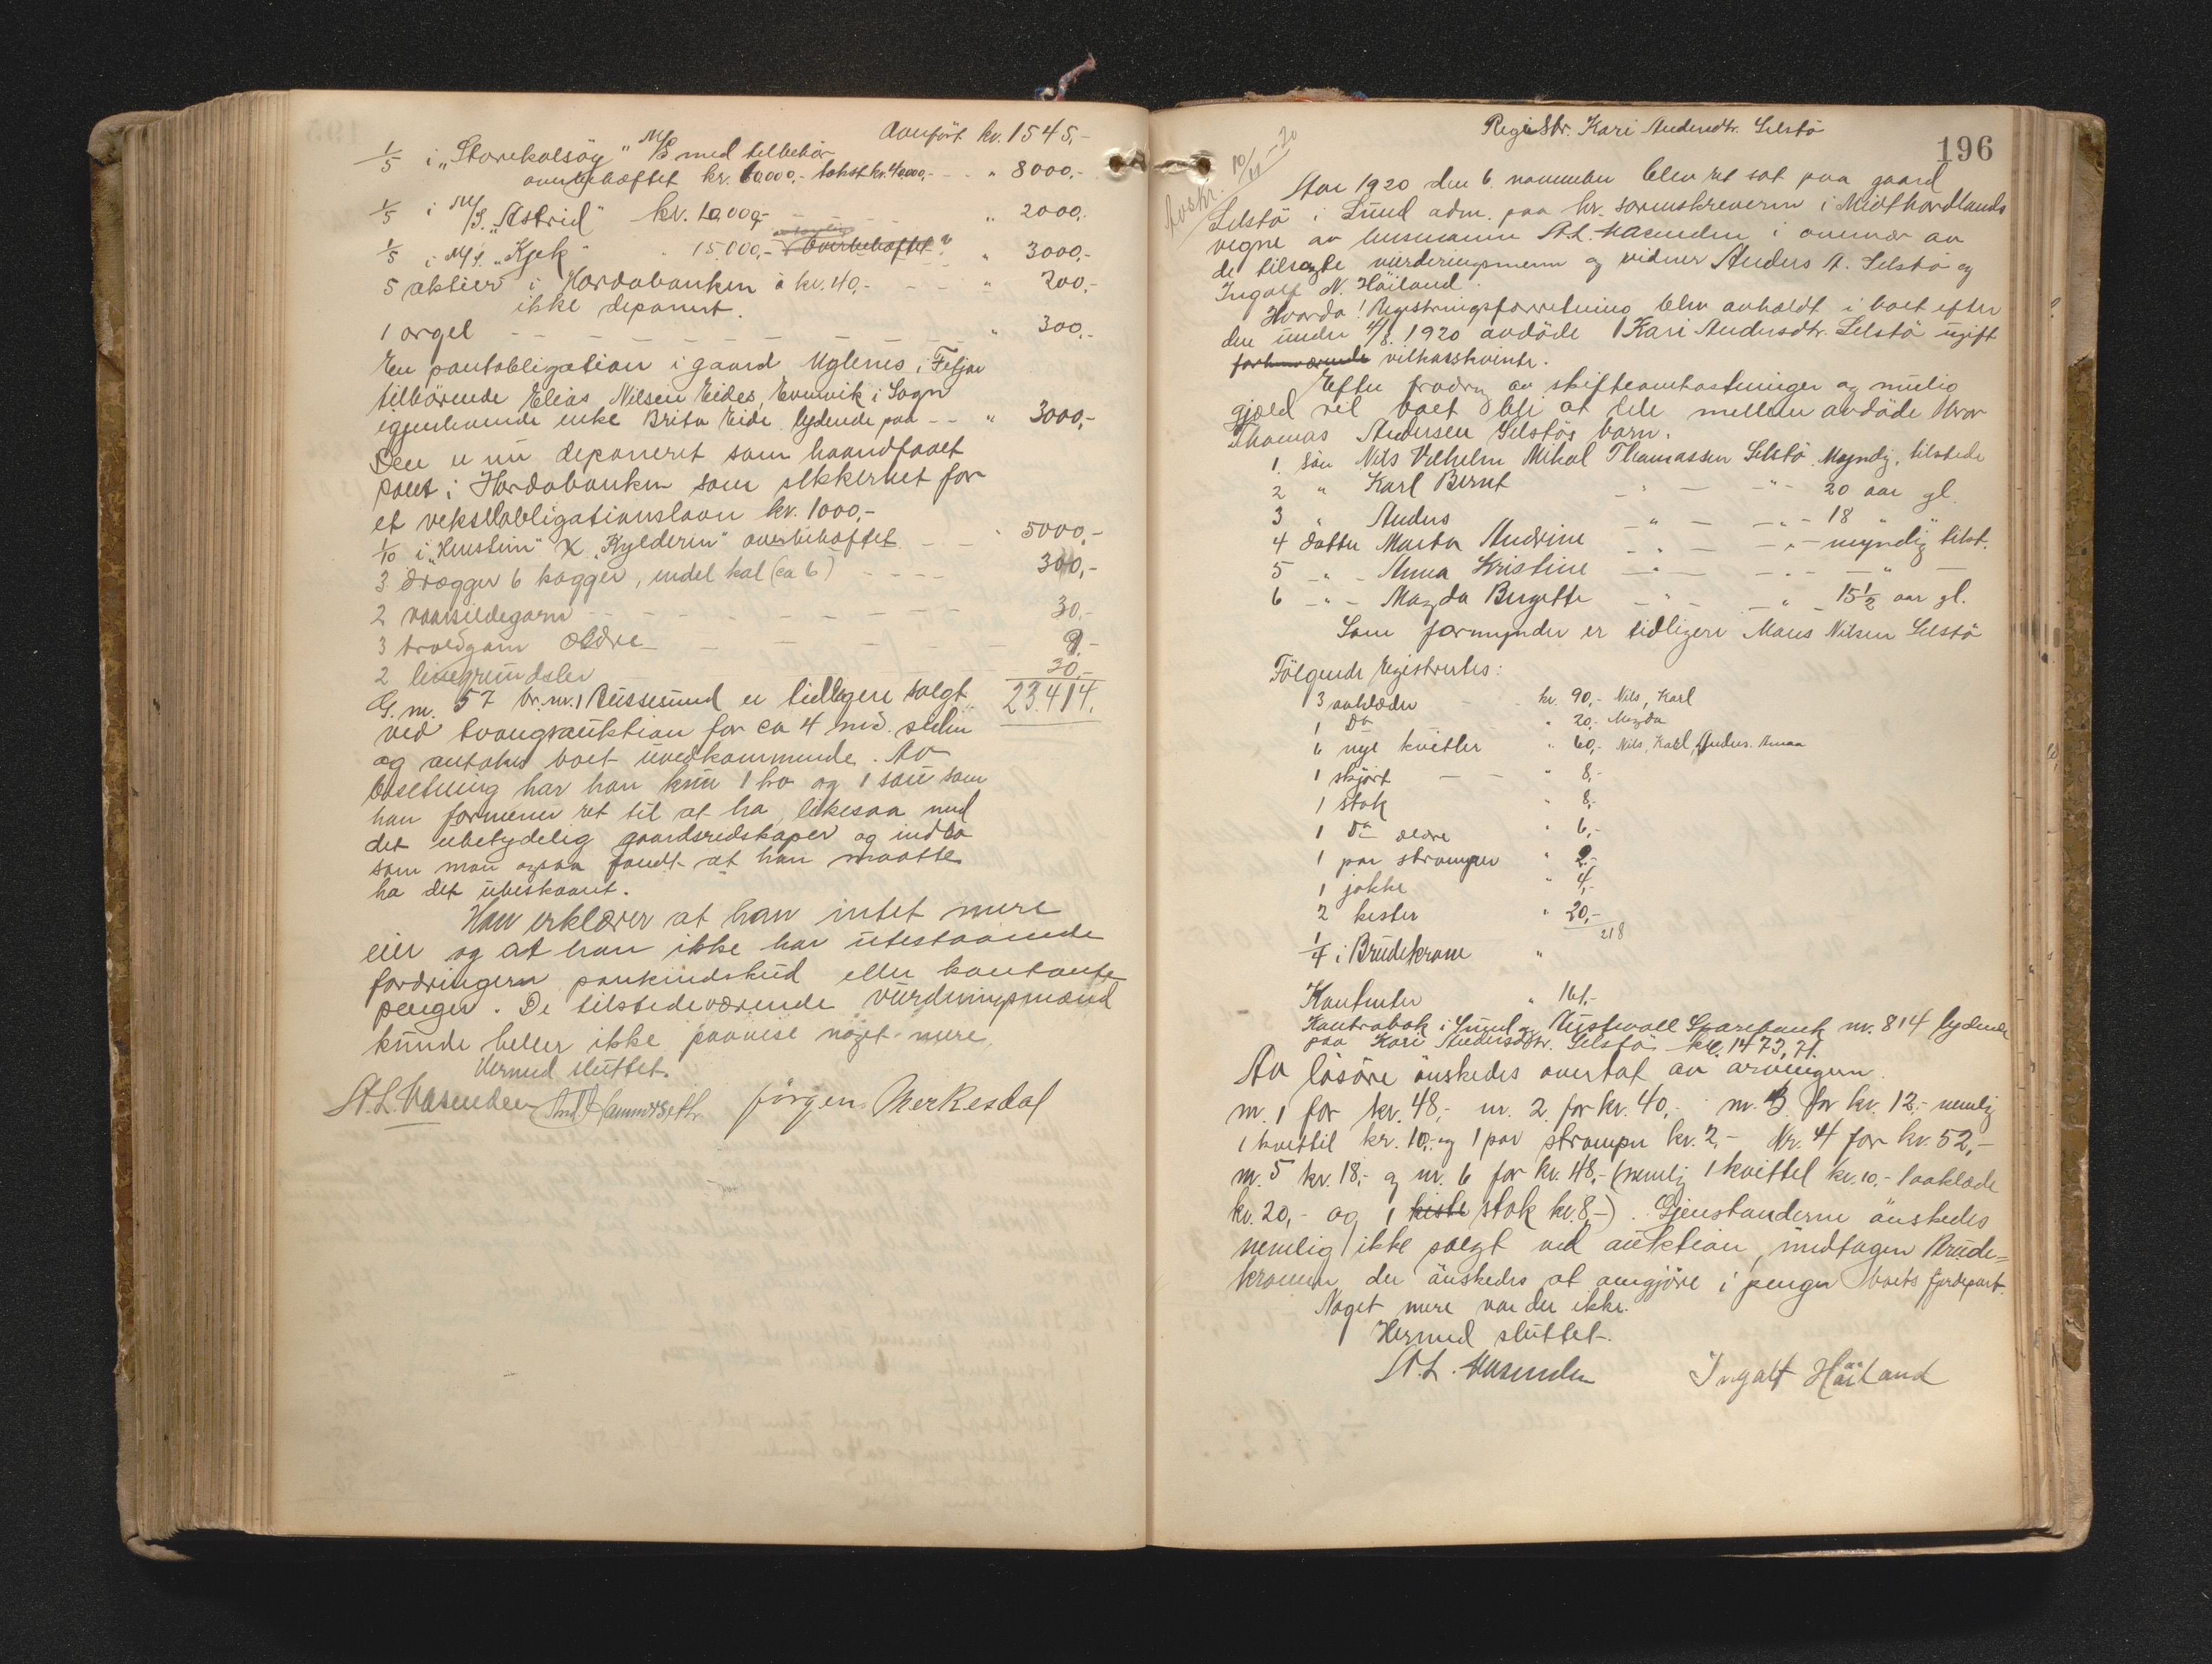 Avført kr. 1545,-
1/5 i „Storekalsøy" M/S med tilbehør
overbehæftet kr. 60000,- takst kr. 40000,- - - " 8000.-
1/5 i M/S. „Astrid" kr. 10,000,- " 2000,-
1/5 i M/S. „Kjek" " 15,000,- overbehæftet? " 3000,-
5 aktier i Hordabanken à kr. 40,- - - - " 200,-
ikke deponert.
1 orgel - - - - - - " 300,-
En pantobligation i gaard Uglenes i Fitjar
tilhørende Elias Nilsen Eides, Evenvik i Sogn
igjenlevende enke Brita Eide lydende paa - - " 3000,-
Den er nu deponeret som haandfaaet
pant i Hordabanken som sikkerhet for
et vekselobligationslaan kr. 1000,-
1/10 i overbehæftet - - " 5000,-
3 drægger 6 kagger, endel kal (ca 6) - - - - 300,-
2 vaarsildegarn - - - - - - 30.-
3 troldgarn ældre - - - - 9.-
2 linegrundsler 30,-
G. nr. 57 br. nr. 1 Bussesund er tidligere solgt 23.414,
ved tvangsauktion for ca 4 md. siden
og antokes boet uvedkommende. Av
besetning har han kun 1 ko og 1 sau som
han formener ret til at ha, likesaa med
det ubetydelig gaardsredskaper og indbo
som man ogsaa fandt at han maatte
ha det ubeskaaret.
Han erklærer at han intet mere
eier og at han ikke har utestaaende
fordringer eller kontante
penger. De tilstedeværende vurderingsmænd
kunde heller ikke paavise noget mere.
Hermed sluttet.
A. L. Vasenden Jørgen Merkesdal
Registr. Kari Andersdtr. Selstø
196
Avskr. 10/11 - 20
Aar 1920 den 6. november blev ret sat paa gaard
Selstø i Sund adm. paa hr. sorenskriveren i Midthordlands
vegne av lensmann A. L. Vasenden i overvær av
de tilsagte vurderingsmenn og vidner Anders A. Selstø og
Ingolf N. Høiland.
Hvorda! Registringsforretning blev avholdt i boet efter
den under 4/8. 1920 avdøde Kari Andersdtr. Selstø ugift
forhenværende vilkaarskvinde.
Efter fradrag av skifteomkostninger og mulig
gjæld vil boet bli at dele mellem avdøde bror
Thomas Andersen Selstøs barn.
1. søn Nils Vilhelm Mikal Thomassen Selstø. Myndig, tilstede
2 " Karl Bernt - " - - " - 20 aar gl.
3 " Anders - " - - " - 18 " "
4 datter Marta Andrine - " - " - myndig tilst.
5 - " - Anna Kristine - " - - " - - " -
6 - " - Magda Birgitte - " - - " 15 1/2 aar gl.
Som formynder er tidligere Mons Nilsen Selstø
Følgende registrertes:
3 aaklæder - - kr. 90,- Nils, Karl
1 Do " 20,- Magda
6 nye kvitler " 60,- Nils, Karl, Anders. Anna
1 skjørt - - " 8,-
1 stak " 8,-
1 Do ældre " 6,-
1 par strømper " 2,-
1 jakke " 4,-
2 kister " 20,-
218
1/4 i Brudekrone "
Kontanter " 161,-
Kontrabok i Sund og Austevoll Sparebank nr. 814 lydende
paa Kari Andersdtr. Selstø kr. 1473,71.
Av løsøre ønskedes overtat av arvingerne.
nr. 1 for kr. 48,- nr. 2 for kr. 40,- nr. 3 for kr. 12,- nemlig
1 kvittil kr. 10,- og 1 par strømper kr. 2,- Nr. 4 for kr. 52,-
nr. 5 kr. 18,- og nr. 6 for kr. 48,- (nemlig 1 kvittel kr. 10.- 1 aaklæde
kr. 20,- og 1 kiste stak kr. 8,-). Gjenstanderne ønskedes
nemlig ikke solgt ved auktion, undtagen Brude=
kronen der ønskedes at omgjøre i penger boets fjerdepart.
Noget mere var der ikke.
Hermed sluttet.
A. L. Vasenden Ingolf Høiland